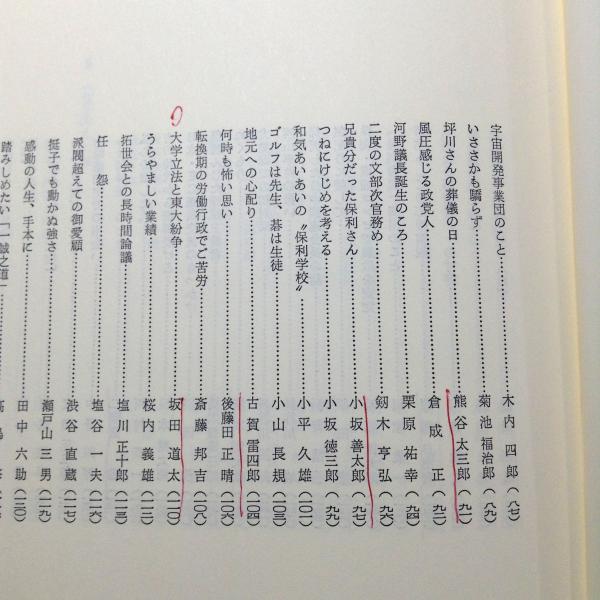 宇宙開発事業団のこと……………木内四郎(八七)
いささかも驕らず……………菊池福治郎(八九)
坪川さんの葬儀の日……………熊谷太三郎(九一)
風圧感じる政党人……………倉成正(九二)
河野議長誕生のころ……………栗原祐幸(九四)
二度の文部次官務め……………剱木亨弘(九六)
兄貴分だった保利さん……………小坂善太郎(九七)
つねにけじめを考える……………小坂徳三郎(九九)
和気あいあいの〝保利学校〟……………小平久雄(一〇一)
ゴルフは先生、碁は生徒……………小山長規(一〇三)
地元への心配り……………古賀雷四郎(一〇四)
何時も怖い思い……………後藤田正晴(一〇六)
転換期の労働行政でご苦労……………斎藤邦吉(一〇八)
大学立法と東大紛争……………坂田道太(一一〇)
うらやましい業績……………桜内義雄(一一二)
拓世会との長時間論議……………塩川正十郎(一一三)
任怨……………塩谷一夫(一一六)
派閥超えての御愛顧……………渋谷直蔵(一一七)
挺子でも動かぬ強さ……………瀬戸山三男(一一九)
感動の人生、手本に……………田中六助(一二〇)
踏みしめたい「一誠之道」